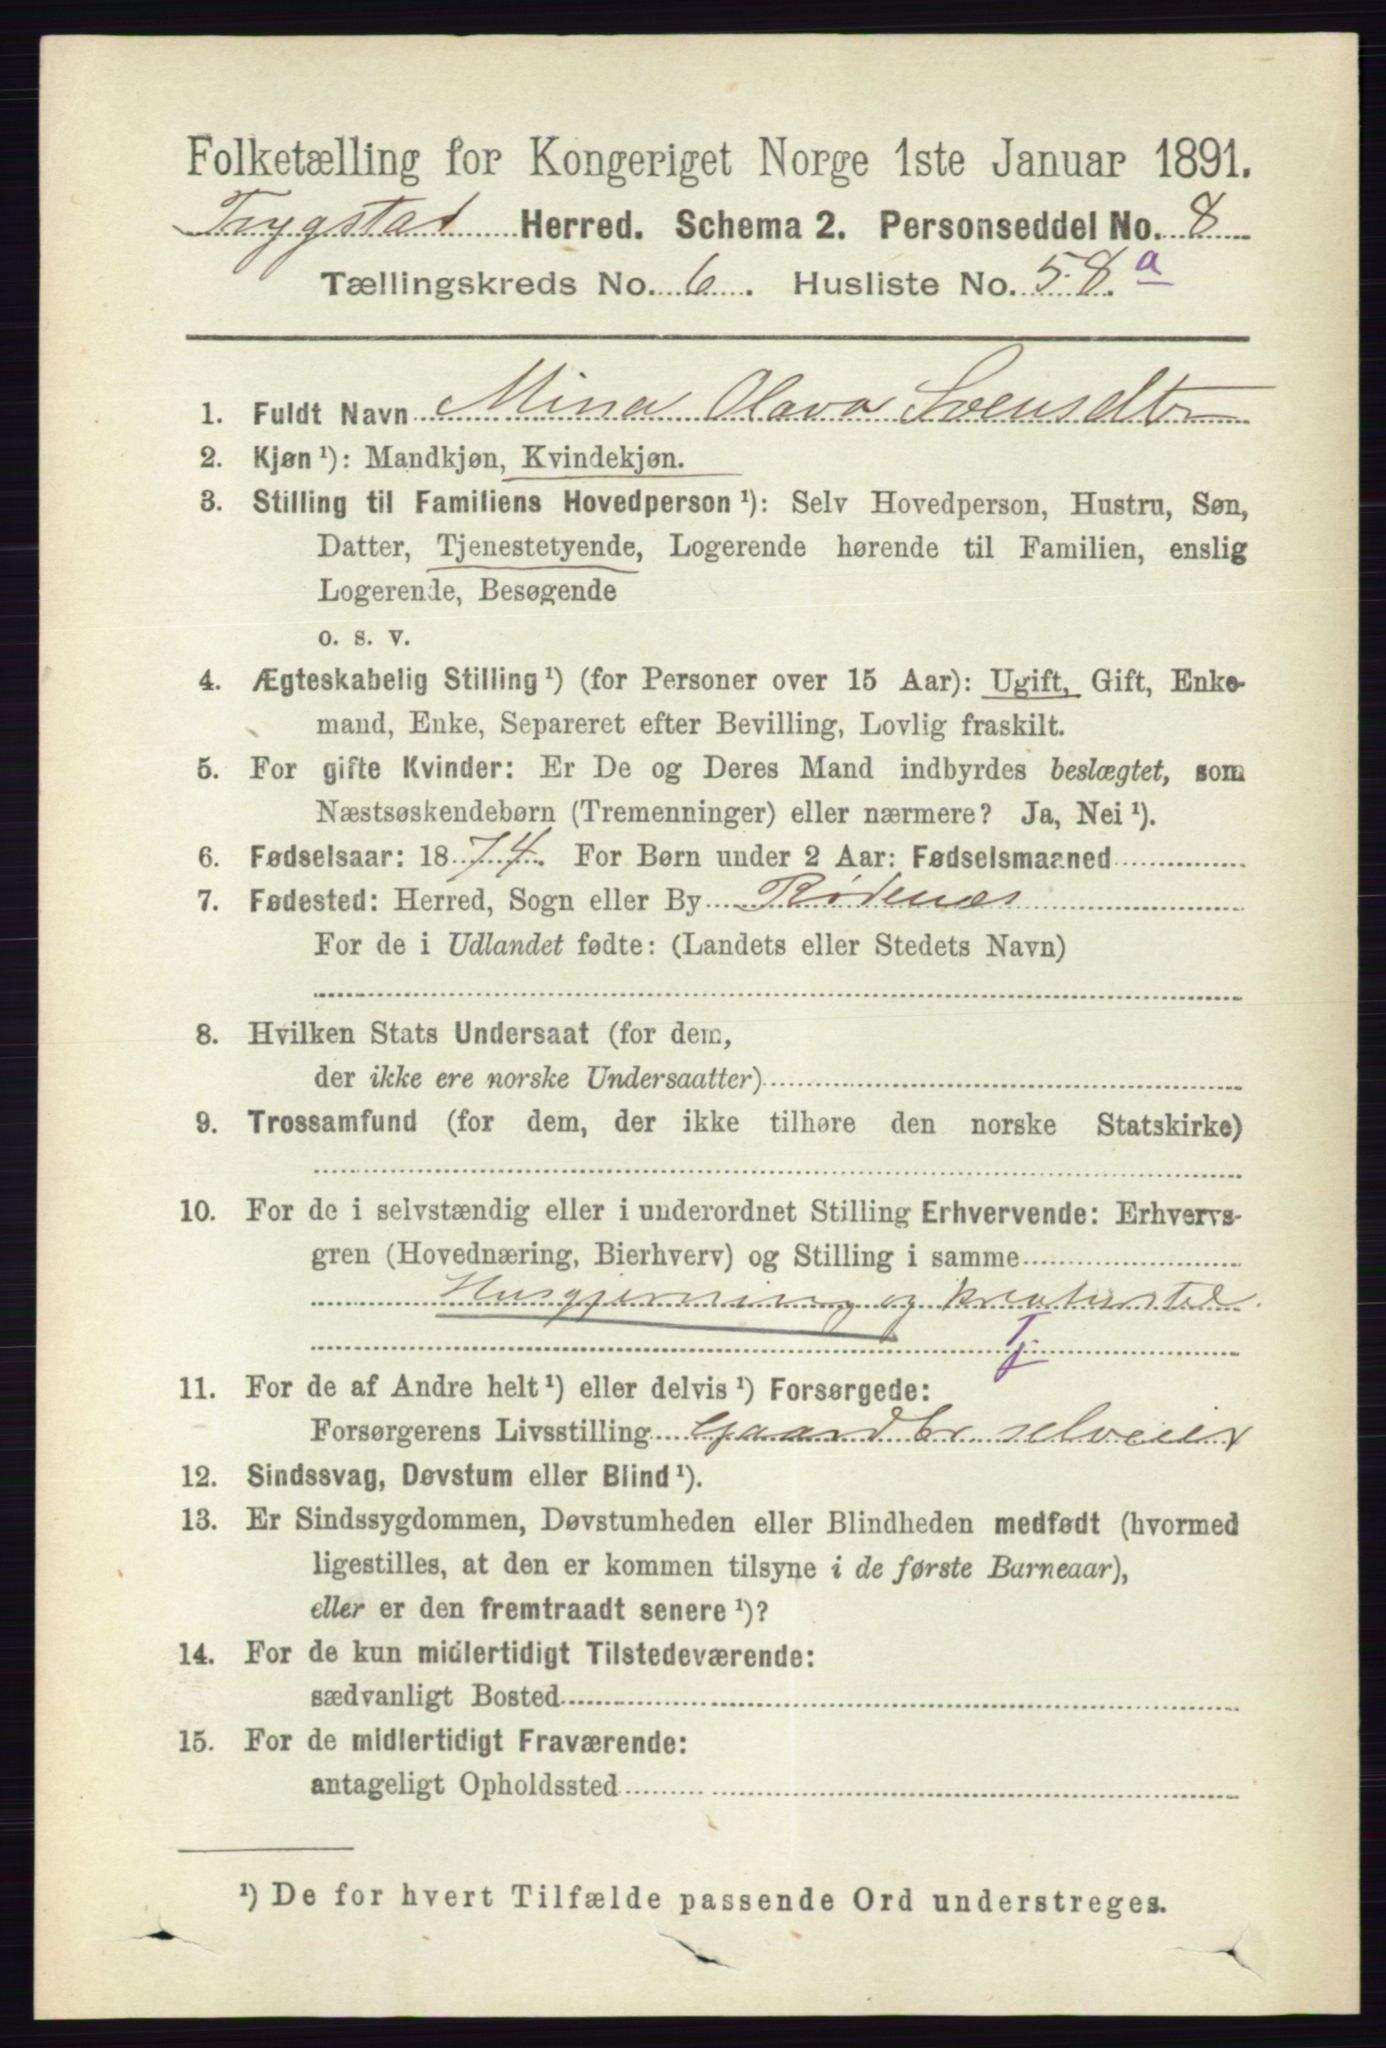 Folketælling for Kongeriget Norge 1ste Januar 1891.
Trygstad Herred. Schema 2. Personseddel No. 8
Tællingskreds No. 6. Husliste No. 58.a
1. Fuldt Navn Mina Olava Svensdtr
2. Kjøn ¹): Mandkjøn, Kvindekjøn.
3. Stilling til Familiens Hovedperson ¹): Selv Hovedperson, Hustru, Søn,
Datter, Tjenestetyende, Logerende hørende til Familien, enslig
Logerende, Besøgende
o. s. v.
4. Ægteskabelig Stilling ¹) (for Personer over 15 Aar): Ugift, Gift, Enke-
mand, Enke, Separeret efter Bevilling, Lovlig fraskilt.
5. For gifte Kvinder: Er De og Deres Mand indbyrdes beslægtet, som
Næstsøskendebørn (Tremenninger) eller nærmere? Ja, Nei ¹).
6. Fødselsaar: 1874. For Børn under 2 Aar: Fødselsmaaned
7. Fødested: Herred, Sogn eller By Rødenæs
For de i Udlandet fødte: (Landets eller Stedets Navn)
8. Hvilken Stats Undersaat (for dem,
der ikke ere norske Undersaatter)
9. Trossamfund (for dem, der ikke tilhøre den norske Statskirke)
10. For de i selvstændig eller i underordnet Stilling Erhvervende: Erhvervs-
gren (Hovednæring, Bierhverv) og Stilling i samme
Husgjerning og kreaturstel.
Tj.
11. For de af Andre helt ¹) eller delvis ¹) Forsørgede:
Forsørgerens Livsstilling Gaardbr selveier
12. Sindssvag, Døvstum eller Blind ¹).
13. Er Sindssygdommen, Døvstumheden eller Blindheden medfødt (hvormed
ligestilles, at den er kommen tilsyne i de første Barneaar),
eller er den fremtraadt senere ¹)?
14. For de kun midlertidigt Tilstedeværende:
sædvanligt Bosted
15. For de midlertidigt Fraværende:
antageligt Opholdssted
¹) De for hvert Tilfælde passende Ord understreges.